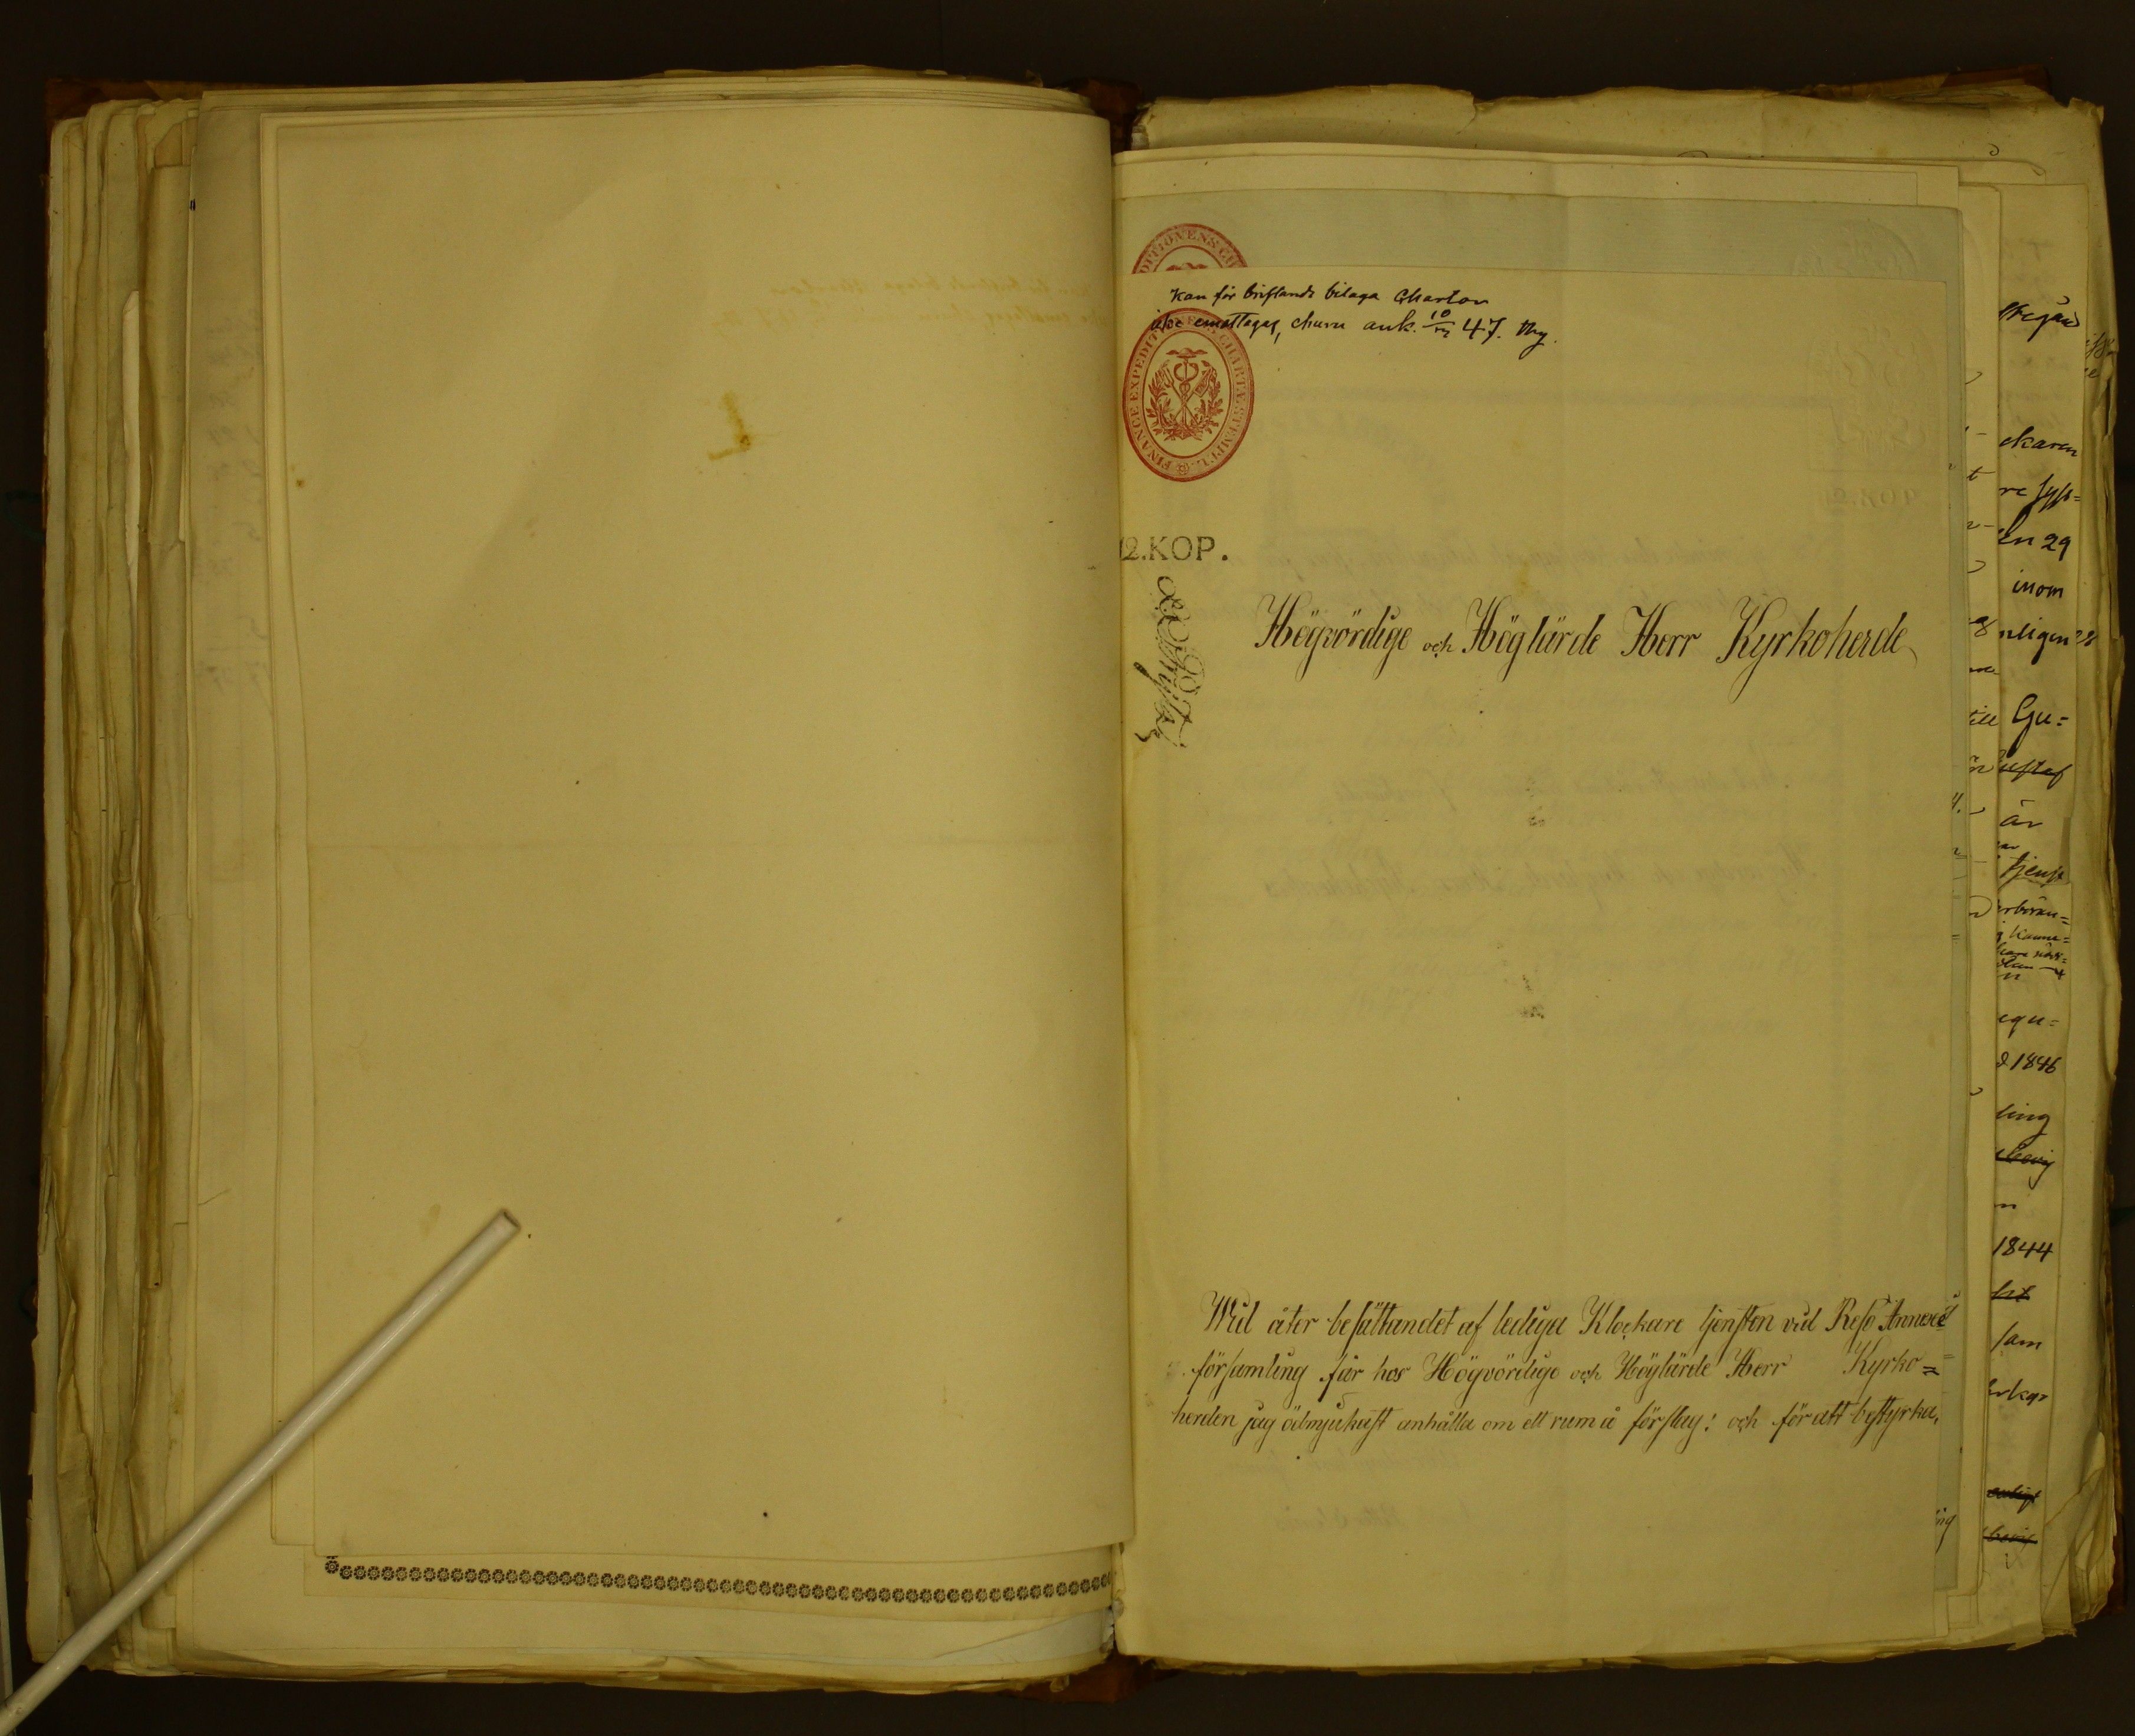 Kan för bristande bilaga Charton
icke emottagas, churu ank. 10/12 47. My.
FINANCE EXPEDITIONENS CHARTÆ STEMPEL.
12.KOP.
Högvördige och Höglärde Herr Kyrkoherde
Wid åter besättandet af lediga Klockare tjensten vid Resö Annexs
församling får hos Högvördige och Höglärde Herr Kyrko=
herden jag ödmjukast anhålla om ett rum å förslag: och för att bestyrka,
ckaren
en 29
inom
nligen
till Gu=
är
tjenst
equ=
1846
ling
1844
sam